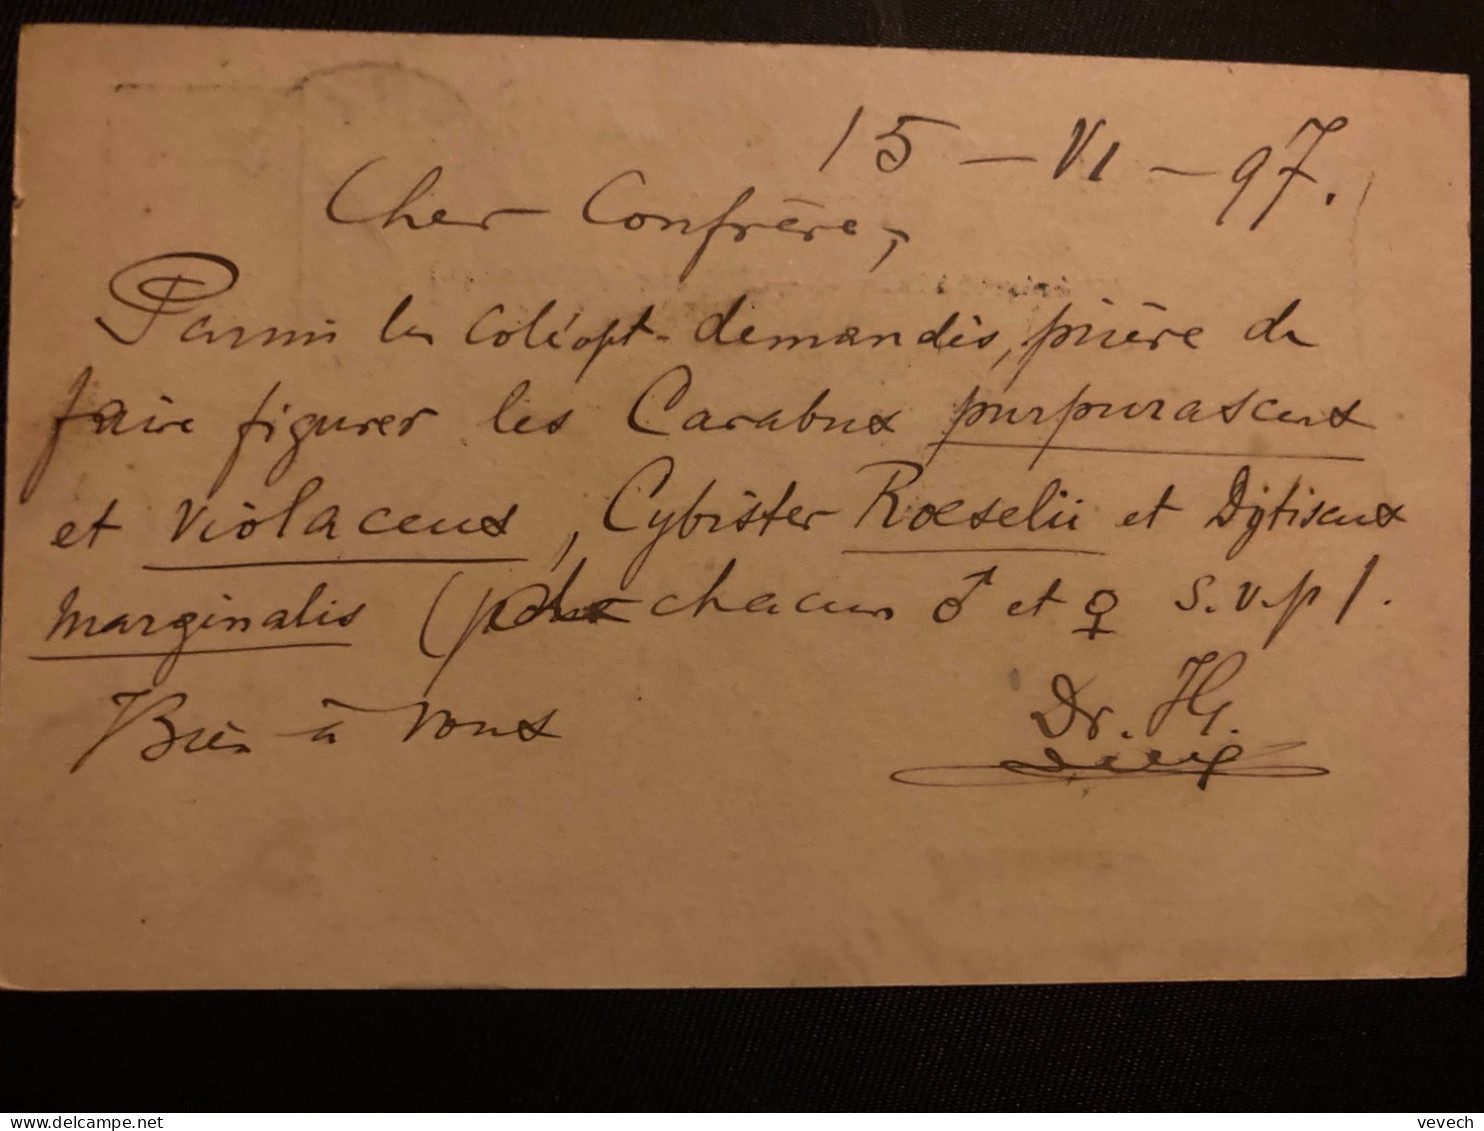 15 — VI — 97.
Cher Confrère,
Parmi les coléopt. demandés, prière de
faire figurer les Carabus purpurascens
et violaceus, Cybister Roeselii et Dytiscus
marginalis ( chacun ♂ et ♀ s.v.p).
Bien à vous
Dr. H.
vevech